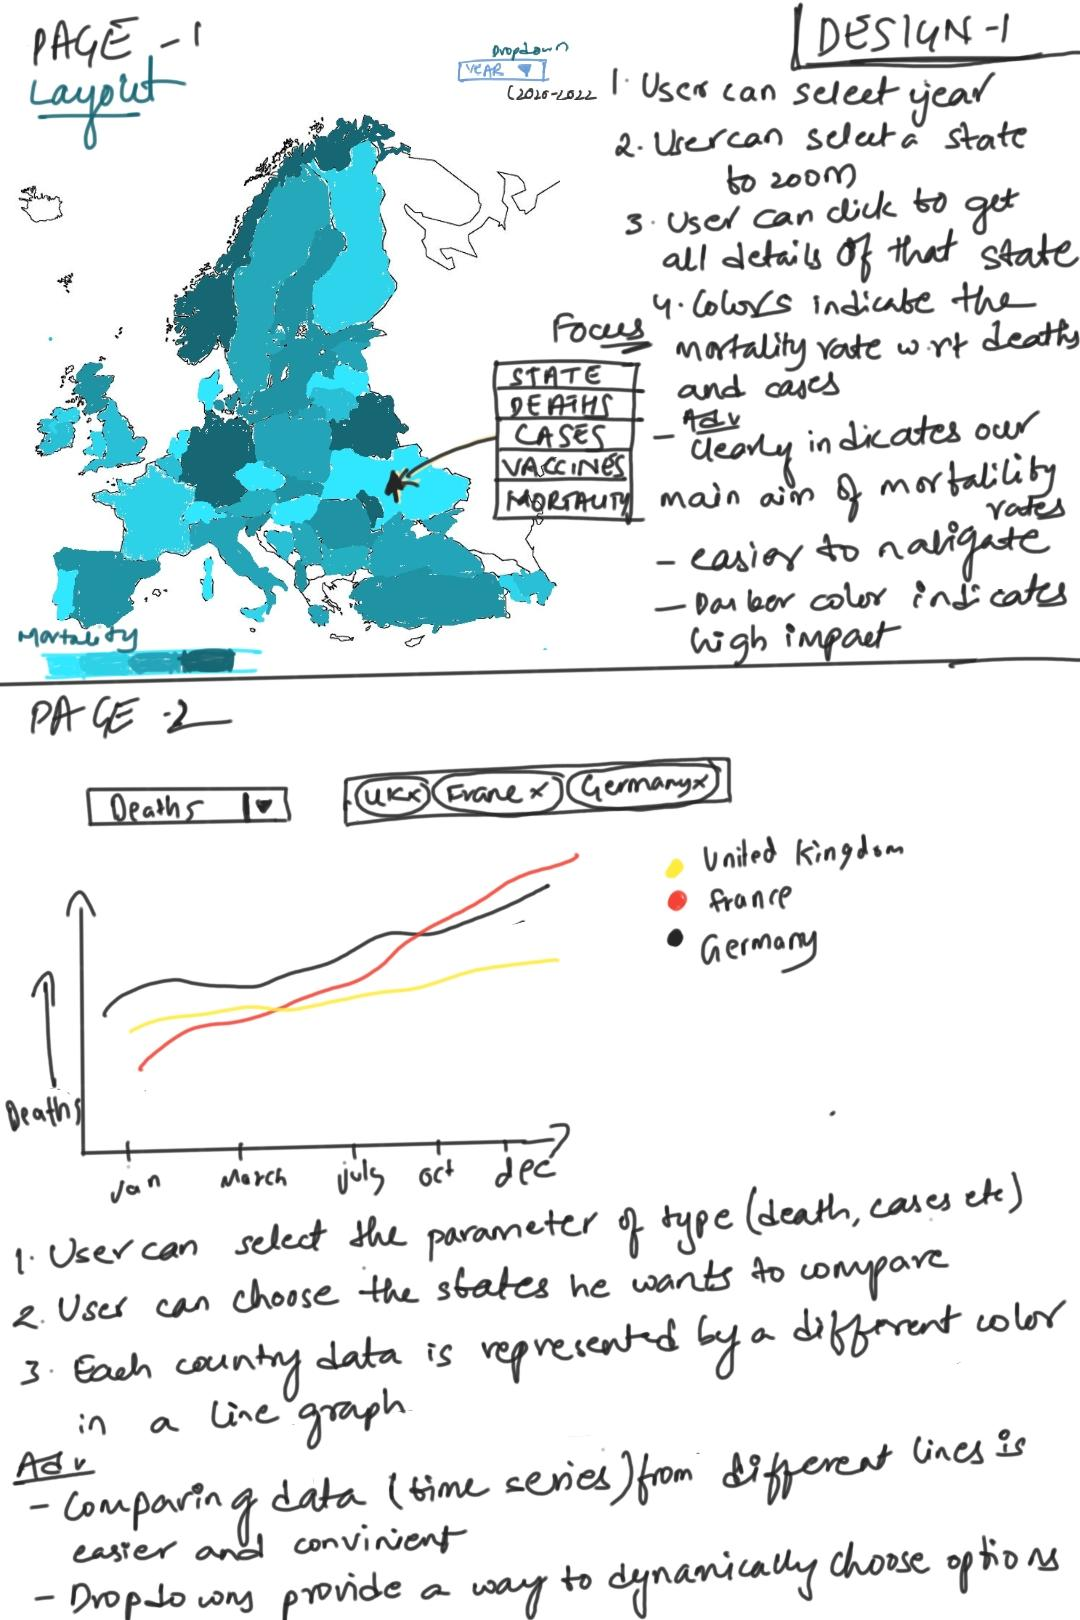 PAGE - 1
Layout
Dropdown
YEAR
(2020-2022
DESIGN-1
1. User can select year
2. User can select a state
to zoom
3. User can click to get
all details of that state
4. Colors indicate the
mortality rate w.r.t deaths
and cases
Adv
- Clearly indicates our
main aim of mortality
rates
- easier to navigate
- Darker color indicates
high impact
Focus
STATE
DEATHS
CASES
VACCINES
MORTALITY
Mortality
PAGE - 2
Deaths
UK x France x Germany x
United Kingdom
france
Germany
Deaths
Jan March july oct dec
1. User can select the parameter of type (death, cases etc)
2. User can choose the states he wants to compare
3. Each country data is represented by a different color
in a line graph
Adv
- Comparing data (time series) from different lines is
easier and convinient
- Dropdowns provide a way to dynamically choose options